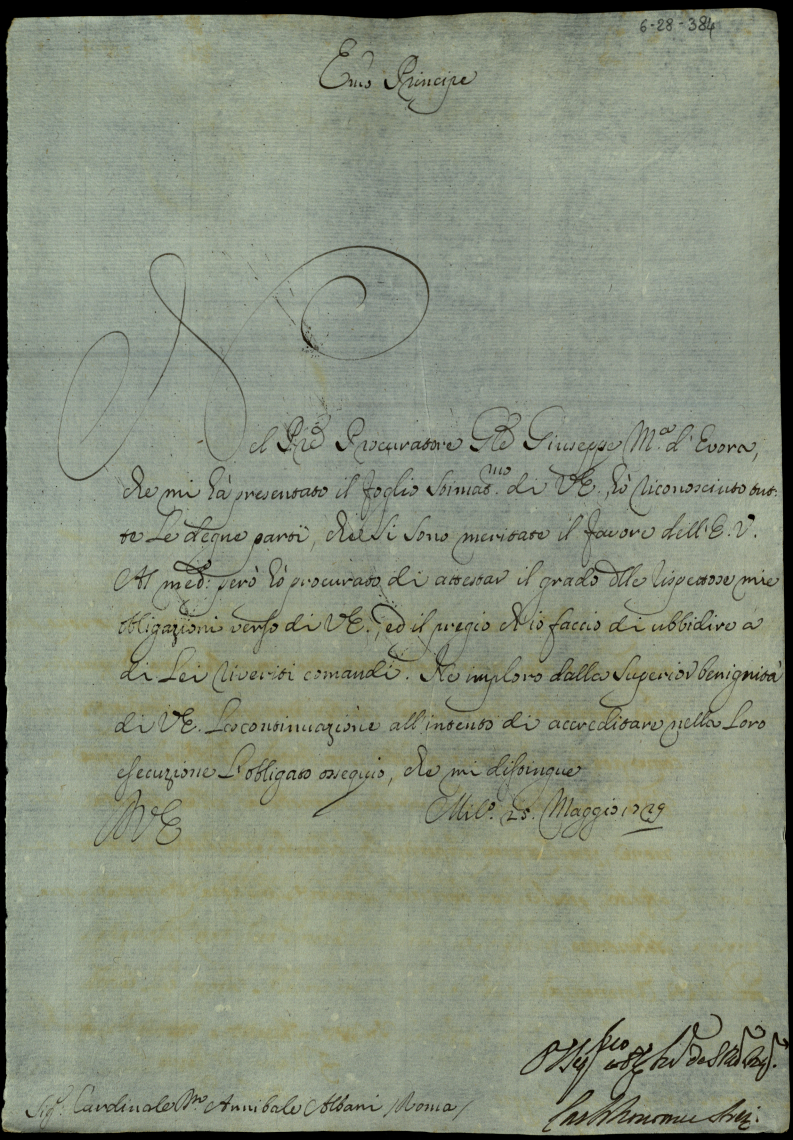 6-28-384
Em̃o Principe
Nel Prẽ Procuratore Gñle Giuseppe M.ª d'Evora,
che mi hà presentato il foglio stimat.mo di V.E., hò riconosciuto tut-
te Le degne parti, che Si sono meritate il favore dell'E.V.
Al med.º però hò procurato di attestar il grado dlle rispettose mie
obligazioni verso di V.E., ed il pregio ch'io faccio di ubbidire a
di Lei riveriti comandi. Ne imploro dalla Superior benignità
di V.E. La continuazione all'intento di accreditare nella Loro
esecuzione L'obligato ossequio, che mi distingue
D V.E. Mil.º 25. Maggio 1729
Sig.r Cardinale Annibale Albani /Roma/